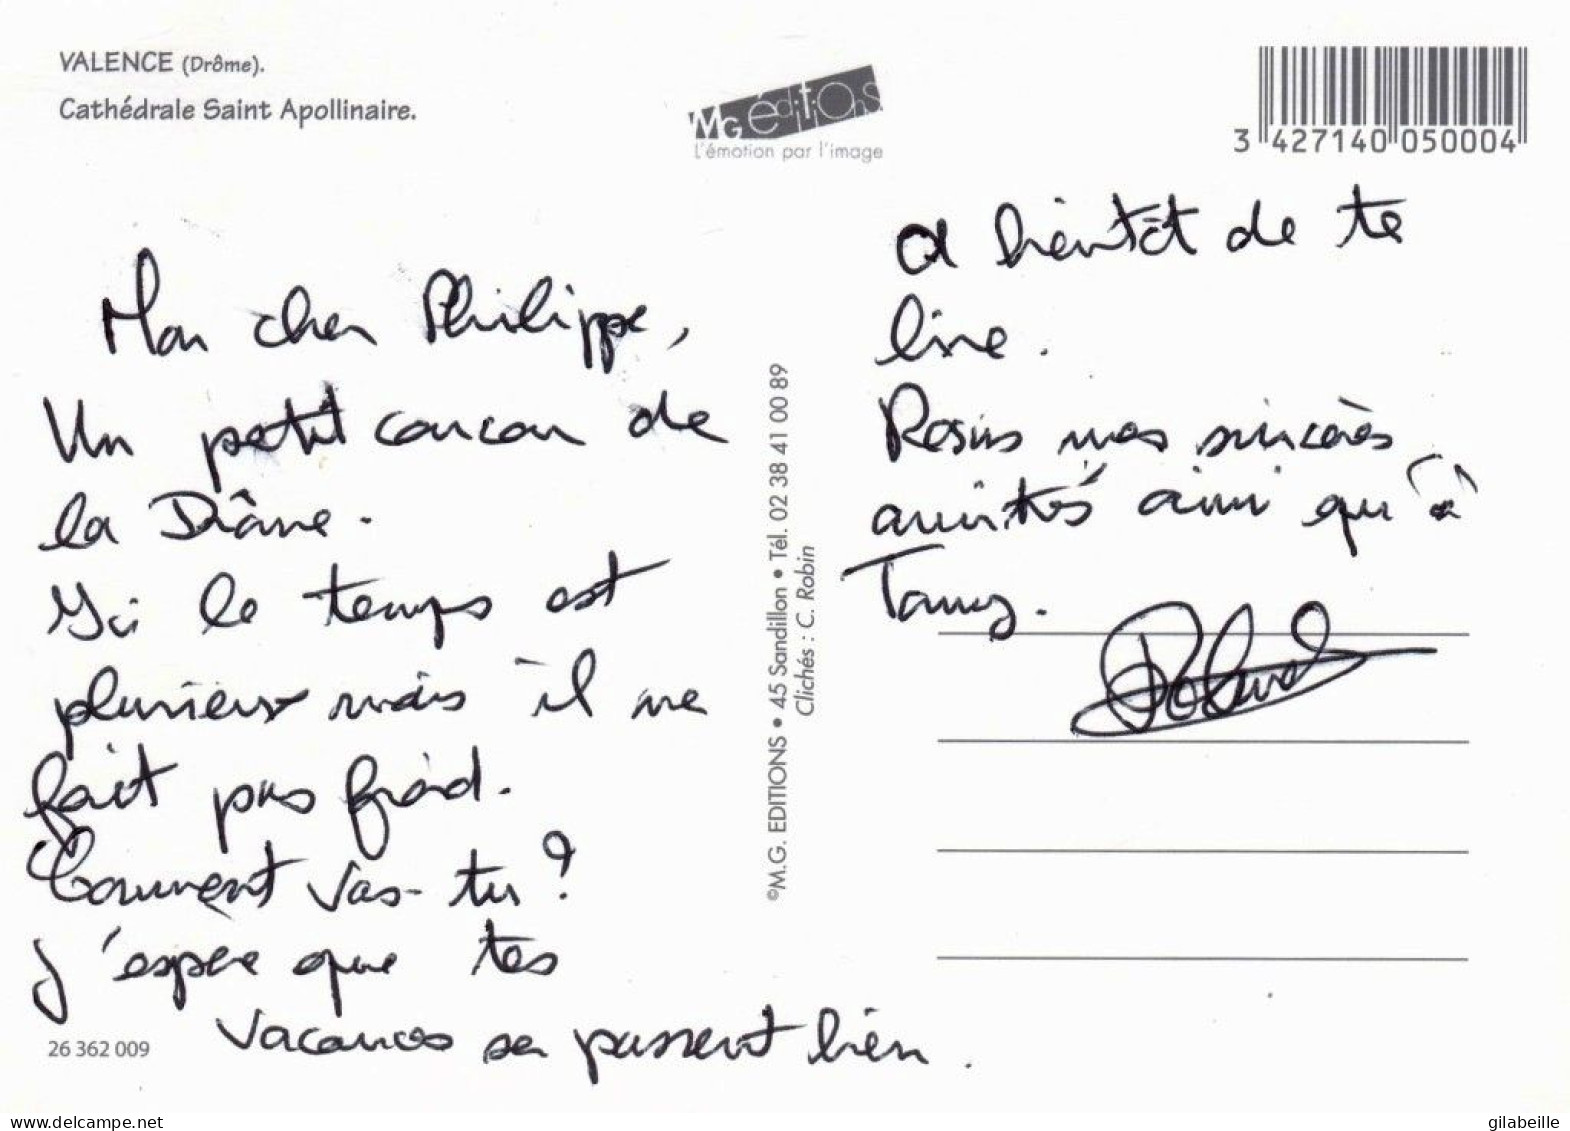 VALENCE (Drôme).
Cathédrale Saint Apollinaire.
MG éditions
L'émotion par l'image
3 427140 050004
Mon cher Philippe,
Un petit coucou de
la Drôme.
Ici le temps est
pluvieux mais il ne
fait pas froid.
Comment vas-tu ?
J'espère que tes
vacances se passent bien.
A bientôt de te
lire.
Reçois mes sincères
amitiés ainsi qu'à
Tanny.
Roland
©M.G. EDITIONS • 45 Sandillon • Tél. 02 38 41 00 89
Clichés : C. Robin
26 362 009
www.delcampe.net
gilabeille